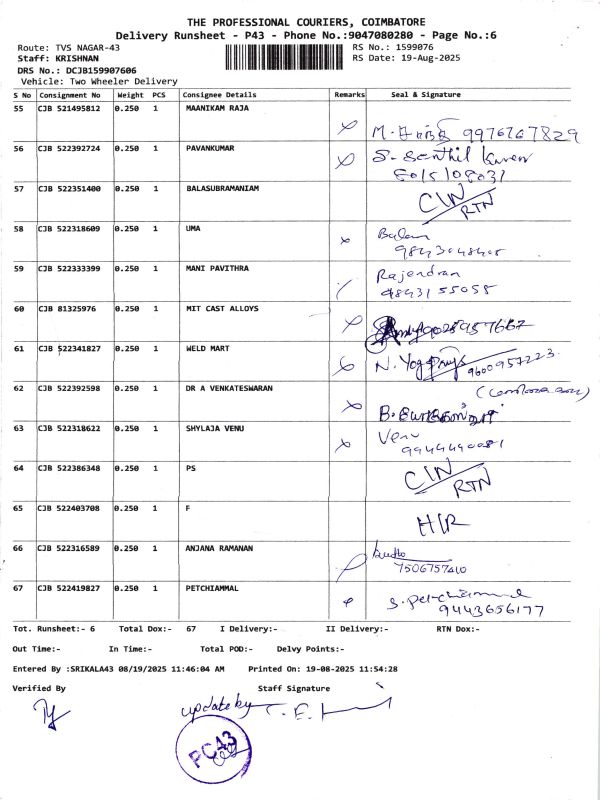 THE PROFESSIONAL COURIERS, COIMBATORE
Delivery Runsheet - P43 - Phone No.:9047080280 - Page No.:6
Route: TVS NAGAR-43 RS No.: 1599076
Staff: KRISHNAN RS Date: 19-Aug-2025
DRS No.: DCJB159907606
Vehicle: Two Wheeler Delivery
S No Consignment No Weight PCS Consignee Details Remarks Seal & Signature
55 CJB 521495812 0.250 1 MAANIKAM RAJA
9976767829
56 CJB 522392724 0.250 1 PAVANKUMAR S. Senthil
8015108031
57 CJB 522351400 0.250 1 BALASUBRAMANIAM
CIN/RTN
58 CJB 522318609 0.250 1 UMA
59 CJB 522333399 0.250 1 MANI PAVITHRA Rajendran
9843155055
60 CJB 81325976 0.250 1 MIT CAST ALLOYS
61 CJB 522341827 0.250 1 WELD MART
9600957223
62 CJB 522392598 0.250 1 DR A VENKATESWARAN
63 CJB 522318622 0.250 1 SHYLAJA VENU Venu
9944490081
64 CJB 522386348 0.250 1 PS
CIN/RTN
65 CJB 522403708 0.250 1 F
H/R
66 CJB 522316589 0.250 1 ANJANA RAMANAN
7506757410
67 CJB 522419827 0.250 1 PETCHIAMMAL
9443656177
Tot. Runsheet:- 6 Total Dox:- 67 I Delivery:- II Delivery:- RTN Dox:-
Out Time:- In Time:- Total POD:- Delvy Points:-
Entered By :SRIKALA43 08/19/2025 11:46:04 AM Printed On: 19-08-2025 11:54:28
Verified By Staff Signature
update by
PC43